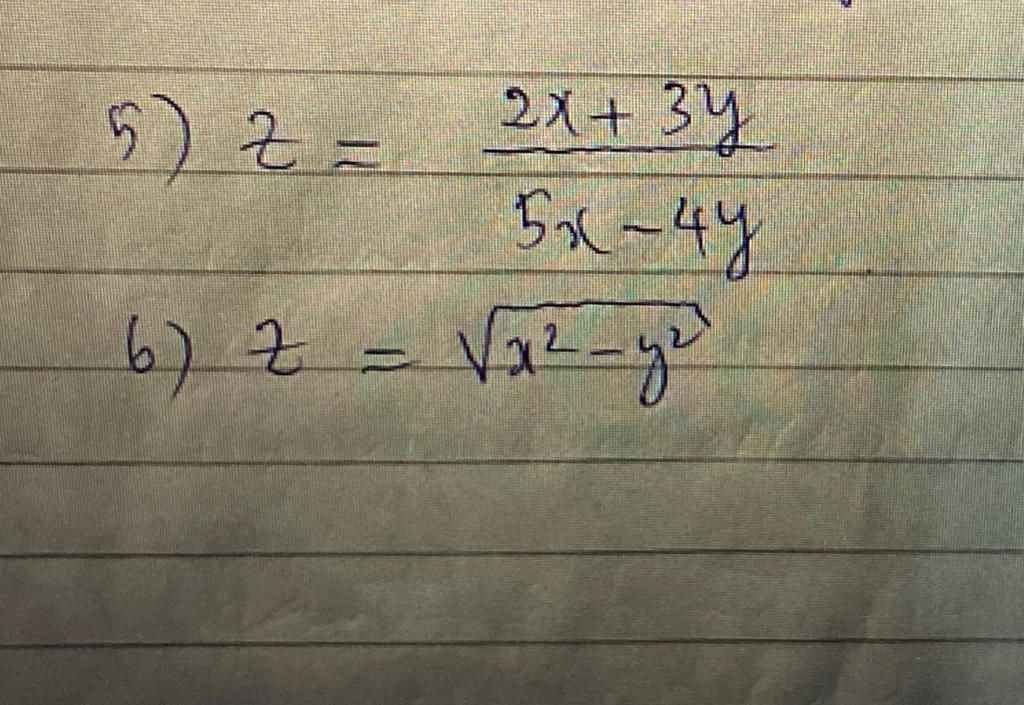 5) z = (2x + 3y) / (5x - 4y)
6) z = √(x² - y²)